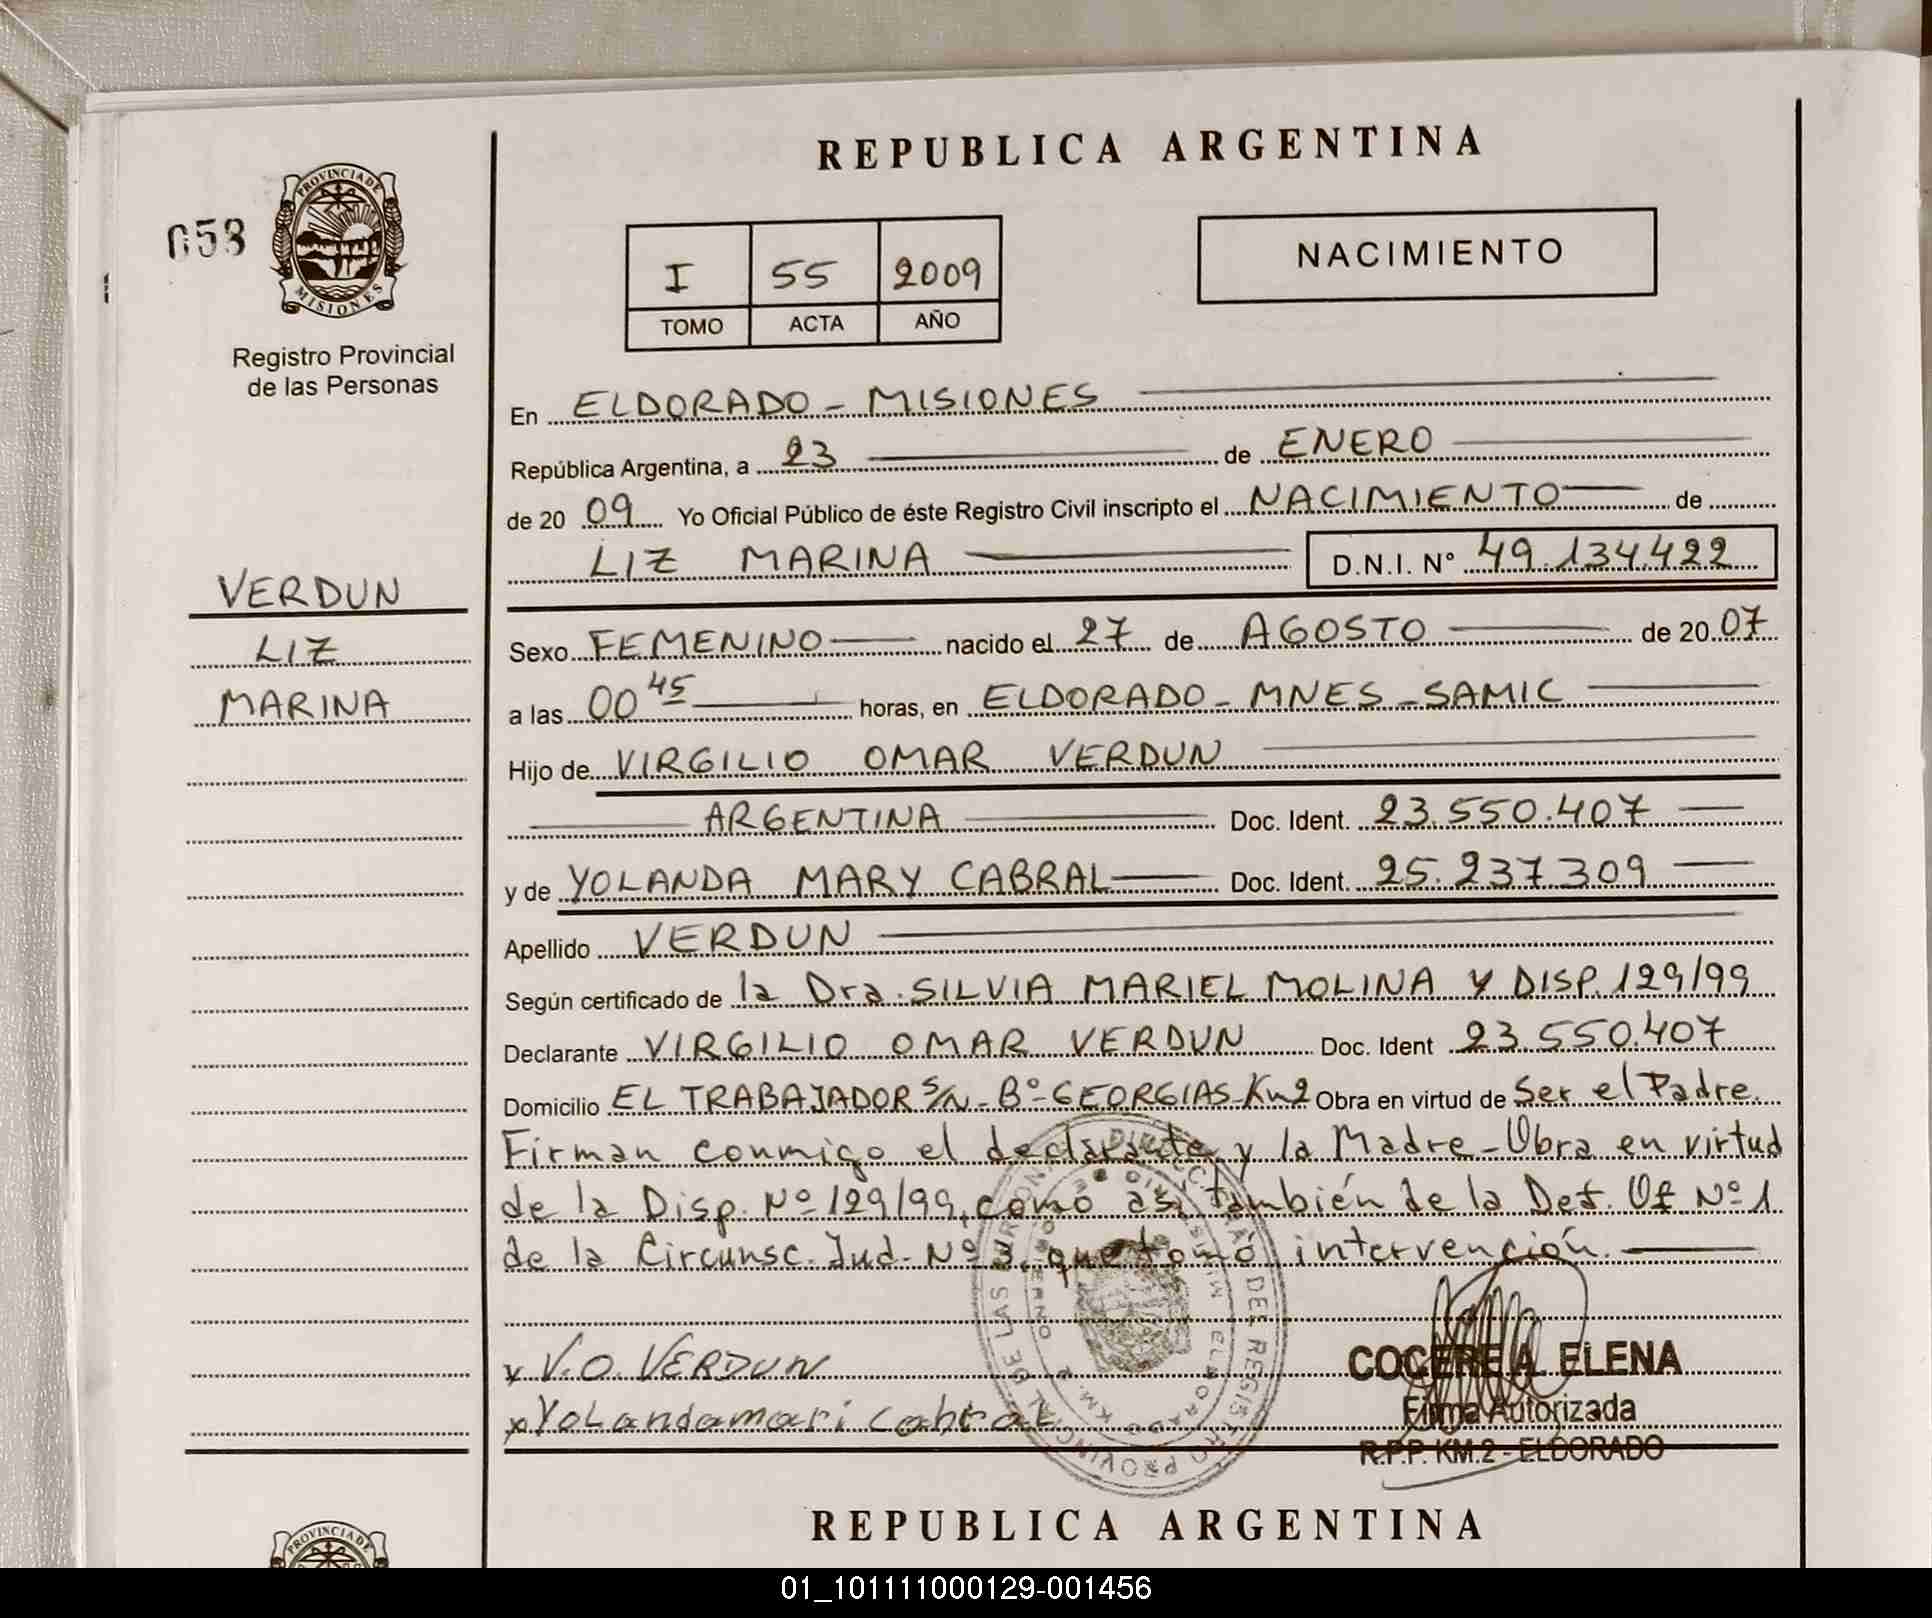 REPUBLICA ARGENTINA
058
PROVINCIA DE
MISIONES
Registro Provincial
de las Personas
I 55 2009
TOMO ACTA AÑO
NACIMIENTO
En ELDORADO - MISIONES
República Argentina, a 23 de ENERO
de 20 09 Yo Oficial Público de éste Registro Civil inscripto el NACIMIENTO de
LIZ MARINA D.N.I. N° 49.134.422
VERDUN
LIZ
MARINA
Sexo FEMENINO nacido el 27 de AGOSTO de 20 07
a las 00 45 horas, en ELDORADO - MNES - SAMIC
Hijo de VIRGILIO OMAR VERDUN
ARGENTINA Doc. Ident. 23.550.407
y de YOLANDA MARY CABRAL Doc. Ident. 25.237.309
Apellido VERDUN
Según certificado de la Dra. SILVIA MARIEL MOLINA Y DISP. 129/99
Declarante VIRGILIO OMAR VERDUN Doc. Ident 23.550.407
Domicilio EL TRABAJADOR S/N - B° - GEORGIAS - Km2 Obra en virtud de Ser el Padre.
Firman conmigo el declarante y la Madre - Obra en virtud
de la Disp. Nº 129/99, como así también de la Def. Of Nº 1
de la Circunsc. Jud. Nº 3, que tomó intervención.
V.O. VERDUN
x Yolandamari Cabral
COCERE A. ELENA
Firma Autorizada
R.P.P. KM.2 - ELDORADO
REPUBLICA ARGENTINA
PROVINCIA DE
01_101111000129-001456